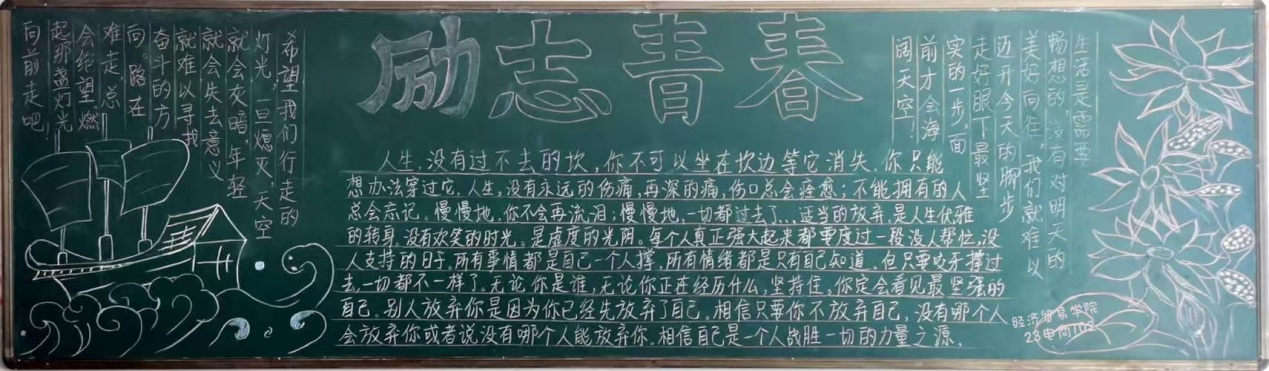 励志青春
生活是需要
畅想的,没有对明天的
美好向往,我们就难以
迈开今天的脚步
走好眼下最坚
实的一步,面
前才会海
阔天空!
人生,没有过不去的坎,你不可以坐在坎边等它消失,你只能
想办法穿过它.人生,没有永远的伤痛,再深的痛,伤口总会痊愈;不能拥有的人
总会忘记。慢慢地,你不会再流泪;慢慢地,一切都过去了...适当的放弃,是人生优雅
的转身。没有欢笑的时光。是虚度的光阴。每个人真正强大起来都要度过一段没人帮忙,没
人支持的日子,所有事情都是自己一个人撑,所有情绪都是只有自己知道。但只要咬牙撑过
去,一切都不一样了。无论你是谁,无论你正在经历什么,坚持住,你定会看见最坚强的
自己。别人放弃你是因为你已经先放弃了自己。相信只要你不放弃自己,没有哪个人
会放弃你或者说没有哪个人能放弃你。相信自己是一个人战胜一切的力量之源。
希望我们行走的
灯光,一旦熄灭,天空
就会灰暗,年轻
就会失去意义
就难以寻找
奋斗的方
向.路在
难走总
会给望燃
起那盏灯光
向前走吧!
经济贸易学院
23电商102